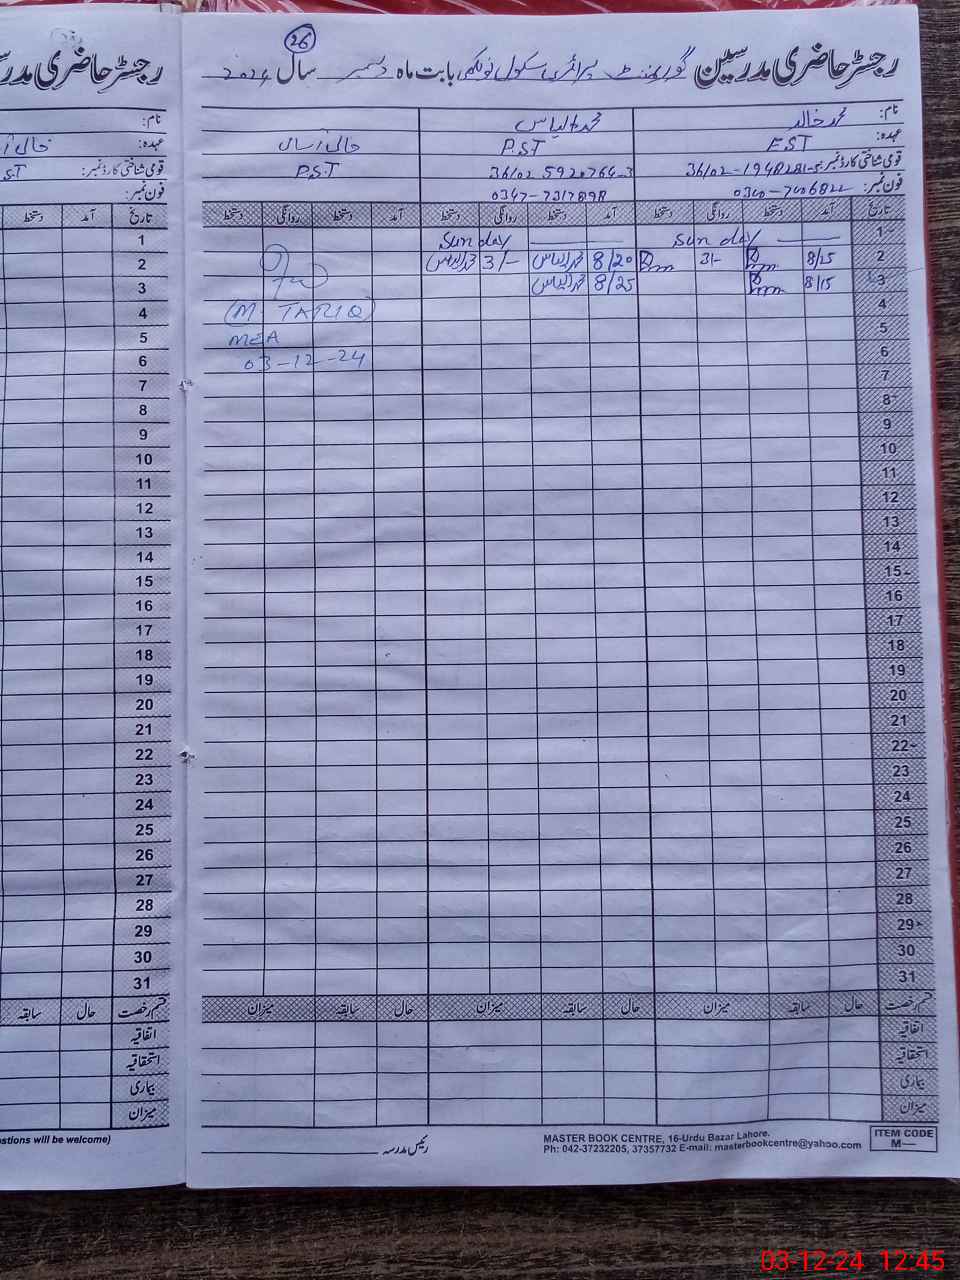 26
رجسٹر حاضری مدرسین گورنمنٹ پرائمری سکول نولکھی بابت ماہ دسمبر سال 2024
نام: محمد خالد محمد الیاس
عہدہ: EST P.ST خالی آسامی
قومی شناختی کارڈ نمبر: 36102 5920764-3 P.S.T
فون نمبر: 0347-7317898
تاریخ آمد دستخط روانگی دستخط آمد دستخط روانگی دستخط آمد دستخط روانگی دستخط
1 Sunday Sunday
2 8/25 3/- 8/20 محمد الیاس 3/- محمد الیاس
3 8/15 8/25 محمد الیاس
4 (M TARIQ)
5 MEA
6 03-12-24
7
8
9
10
11
12
13
14
15
16
17
18
19
20
21
22
23
24
25
26
27
28
29
30
31
قسم رخصت حال سابقہ میزان حال سابقہ میزان حال سابقہ میزان
اتفاقیہ
استحقاقیہ
بیماری
میزان
رئیس مدرسہ
MASTER BOOK CENTRE, 16-Urdu Bazar Lahore.
Ph: 042-37232205, 37357732 E-mail: masterbookcentre@yahoo.com
ITEM CODE
M—
رجسٹر حاضری
نام:
عہدہ: خالی
قومی شناختی کارڈ نمبر: S.T
فون نمبر:
تاریخ آمد دستخط
1
2
3
4
5
6
7
8
9
10
11
12
13
14
15
16
17
18
19
20
21
22
23
24
25
26
27
28
29
30
31
قسم رخصت حال سابقہ
اتفاقیہ
استحقاقیہ
بیماری
میزان
stions will be welcome)
03-12-24 12:45